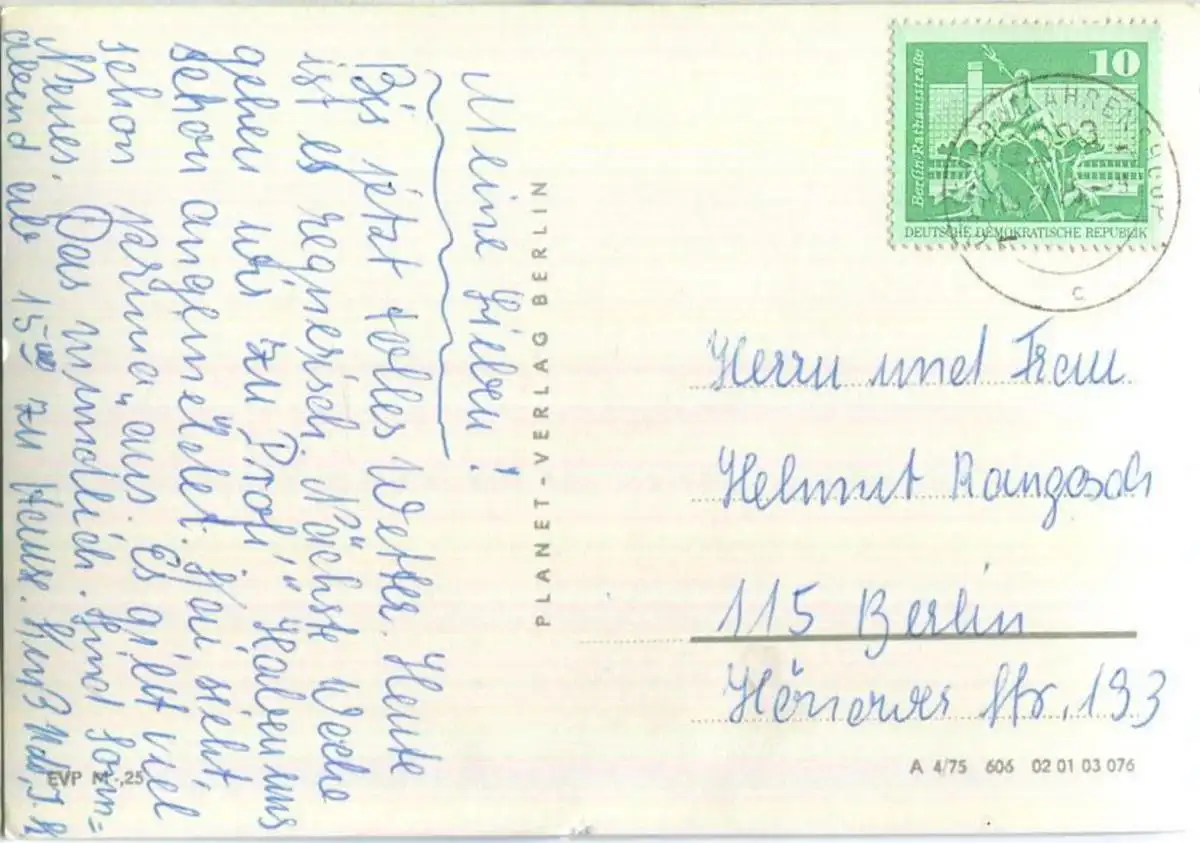 Meine Lieben!
Bis jetzt tolles Wetter. Heute
ist es regnerisch. Nächste Woche
gehen wir zu "Profi". Haben uns
schon angemeldet. Hani sieht
schon prima aus. Es gibt viel
Neues. Das mündlich. Sind Sonn=
abend ab 15⁰⁰ zu Hause. Kuß
PLANET-VERLAG BERLIN
EVP M -,25
10
Berlin-Rathausstraße
DEUTSCHE DEMOKRATISCHE REPUBLIK
C
Herrn und Frau
Helmut Rangosch
115 Berlin
Hönower Str. 193
A 4/75 606 02 01 03 076